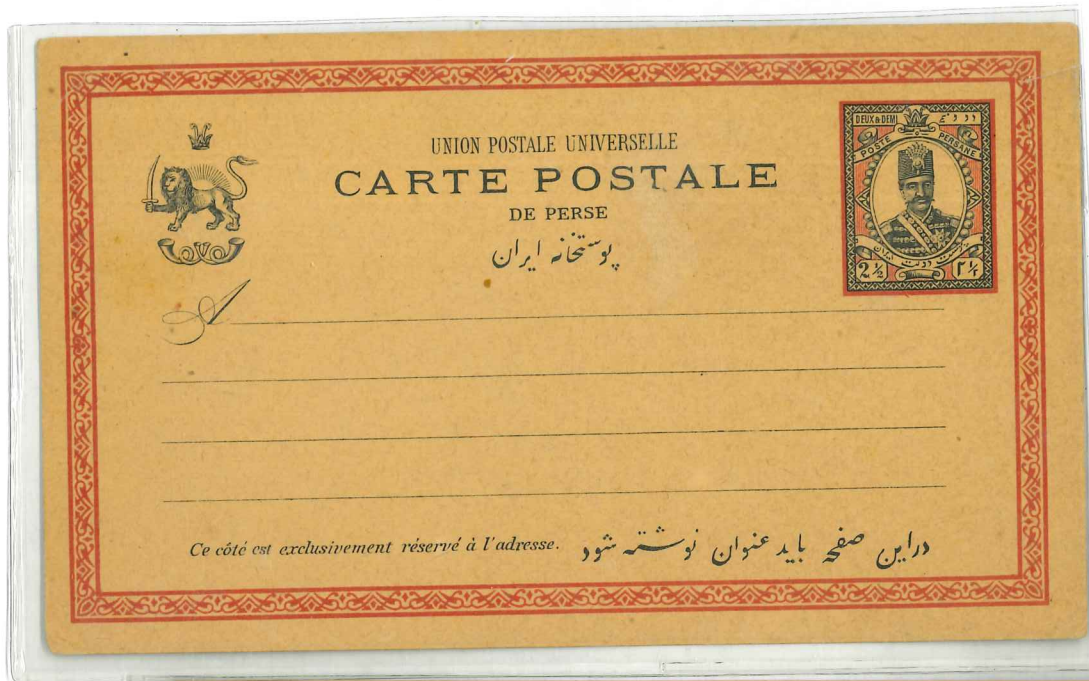 UNION POSTALE UNIVERSELLE
CARTE POSTALE
DE PERSE
پوستخانه ایران
DEUX & DEMI
POSTE PERSANE
2 ½ ۲ ۱/۲
A
Ce côté est exclusivement réservé à l'adresse. دراین صفحه باید عنوان نوشته شود